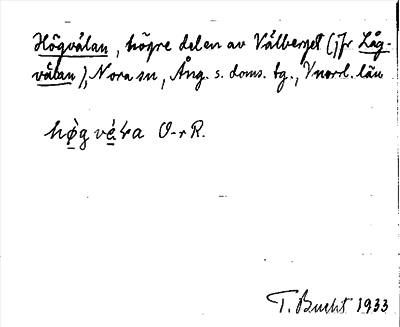 Högvålan, högre delen av Vålberget (jfr Låg-
vålan), Nora sn, Ång. s. doms. tg., Vnorrl. län
O-r R.
T. Bucht 1933